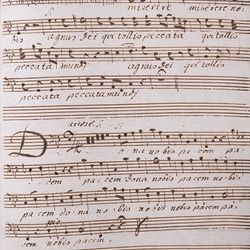 miserere no
bis agnus dei qui tollis peccata qui tollis
peccata mundi agnus dei qui tollis
peccata peccata mundi
Dona nobis pacem pa
cem pa cem dona nobis pacem nobis
pacem dona nobis dona nobis pacem pa
cem nobis pacem.